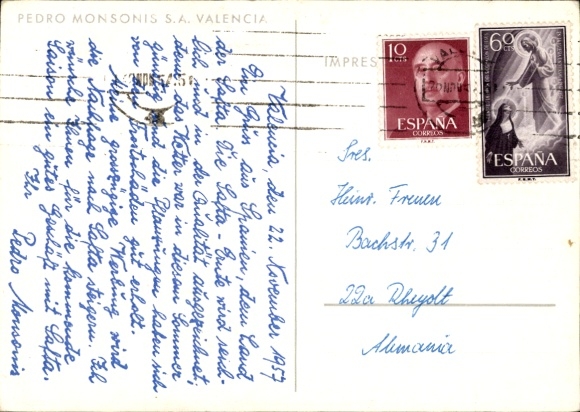 PEDRO MONSONIS S.A. VALENCIA
Valencia, den 22. November 1957
Ein Gruss aus Spanien, dem Land
der Safta. Die Safta-Ernte wird reich-
lich und in der Qualität ausgezeichnet,
denn das Wetter war in diesem Sommer
günstig und die Pflanzungen haben sich
von den Frostschäden gut erholt.
Meine grosszügige Werbung wird
die Nachfrage nach Safta steigern. Ich
wünsche Ihnen für die kommende
Saison ein gutes Geschäft mit Safta.
Ihr
Pedro Monsonis
IMPRES
10
CTS
ESPAÑA
CORREOS
F.N.M.T.
60
CTS
ESPAÑA
CORREOS
F.N.M.T.
Sres.
Heinr. Freuen
Bachstr. 31
22a Rheydt
Alemania